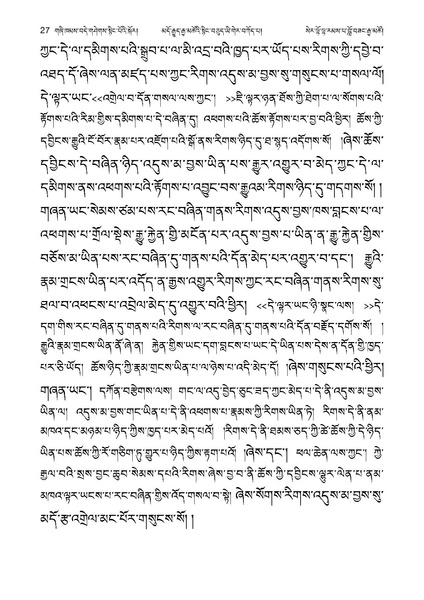 27 གཞི་ཁམས་བདེ་གཤེགས་སྙིང་པོའི་སྐོར། མདོ་རྒྱུད་རྒྱ་མཚོའི་སྙིང་བཅུད་ཡི་གེར་བཀོད་པ། སེར་བྱེ་བློ་རམས་པ་བློ་བཟང་རྒྱ་མཚོ།
ཀྱང་དེ་ལ་དམིགས་པའི་སྒྲུབ་པ་ལ་མི་འདྲ་བའི་ཁྱད་པར་ཡོད་པས་རིགས་ཀྱི་དབྱེ་བ་
འཐད་དོ་ཞེས་ལན་མཛད་པས་ཀྱང་རིགས་འདུས་མ་བྱས་སུ་གསུངས་པ་གསལ་ལོ།
དེ་ལྟར་ཡང་<<འགྲེལ་བ་དོན་གསལ་ལས་ཀྱང་། >>ཇི་ལྟར་ཉན་ཐོས་ཀྱི་ཐེག་པ་ལ་སོགས་པའི་
རྟོགས་པའི་རིམ་གྱིས་དམིགས་པ་དེ་བཞིན་དུ། འཕགས་པའི་ཆོས་རྟོགས་པར་བྱ་བའི་ཕྱིར། ཆོས་ཀྱི་
དབྱིངས་རྒྱུའི་ངོ་བོར་རྣམ་པར་འཇོག་པའི་སྒོ་ནས་རིགས་ཉིད་དུ་ཐ་སྙད་འདོགས་སོ། །ཞེས་ཆོས་
དབྱིངས་དེ་བཞིན་ཉིད་འདུས་མ་བྱས་ཡིན་པས་རྒྱུར་འགྱུར་བ་མེད་ཀྱང་དེ་ལ་
དམིགས་ནས་འཕགས་པའི་རྟོགས་པ་འབྱུང་བས་རྒྱུའམ་རིགས་ཉིད་དུ་གདགས་སོ། །
གཞན་ཡང་སེམས་ཙམ་པས་རང་བཞིན་གནས་རིགས་འདུས་བྱས་ཁས་བླངས་པ་ལ་
འཕགས་པ་གྲོལ་སྡེས་རྒྱུ་རྐྱེན་གྱི་མངོན་པར་འདུས་བྱས་པ་ཡིན་ན་རྒྱུ་རྐྱེན་གྱིས་
བཅོས་མ་ཡིན་པས་རང་བཞིན་དུ་གནས་པའི་དོན་མེད་པར་འགྱུར་བ་དང་། རྒྱུའི་
རྣམ་གྲངས་ཡིན་པར་འདོད་ན་རྒྱས་འགྱུར་རིགས་ཀྱང་རང་བཞིན་གནས་རིགས་སུ་
ཐལ་བ་འཕངས་པ་འབྲེལ་མེད་དུ་འགྱུར་བའི་ཕྱིར། <<དེ་ལྟར་ཡང་ཉི་སྣང་ལས། >>དེ་
དག་གིས་རང་བཞིན་དུ་གནས་པའི་རིགས་ལ་རང་བཞིན་དུ་གནས་པའི་དོན་བརྗོད་དགོས་སོ། །
རྒྱུའི་རྣམ་གྲངས་ཡིན་ནོ་ཞེ་ན། རྐྱེན་གྱིས་ཡང་དག་བླངས་པ་ཡང་དེ་ཡིན་པས་དེས་ན་དོན་གྱི་ཁྱད་
པར་ཅི་ཡོད། ཆོས་ཉིད་ཀྱི་རྣམ་གྲངས་ཡིན་པ་ལ་ཉེས་པ་འདི་མེད་དོ། །ཞེས་གསུངས་པའི་ཕྱིར།
གཞན་ཡང་། དཀོན་བརྩེགས་ལས། གང་ལ་འདུ་བྱེད་ཅུང་ཟད་ཀྱང་མེད་པ་དེ་ནི་འདུས་མ་བྱས་
ཡིན་ལ། འདུས་མ་བྱས་གང་ཡིན་པ་དེ་ནི་འཕགས་པ་རྣམས་ཀྱི་རིགས་ཡིན་ཏེ། རིགས་དེ་ནི་ནམ་
མཁའ་དང་མཉམ་པ་ཉིད་ཀྱིས་ཁྱད་པར་མེད་པའོ། །རིགས་དེ་ནི་ཐམས་ཅད་ཀྱི་ཚེ་ཆོས་ཀྱི་དེ་ཉིད་
ཡིན་པས་ཆོས་ཀྱི་རོ་གཅིག་ཏུ་གྱུར་པ་ཉིད་ཀྱིས་རྟག་པའོ། །ཞེས་དང་། ཕལ་ཆེན་ལས་ཀྱང་། ཀྱེ་
རྒྱལ་བའི་སྲས་བྱང་ཆུབ་སེམས་དཔའི་རིགས་ཞེས་བྱ་བ་ནི་ཆོས་ཀྱི་དབྱིངས་ལྷུར་ལེན་པ་ནམ་
མཁའ་ལྟར་ཡངས་པ་རང་བཞིན་གྱིས་འོད་གསལ་བ་སྟེ། ཞེས་སོགས་རིགས་འདུས་མ་བྱས་སུ་
མདོ་རྩ་འགྲེལ་མང་པོར་གསུངས་སོ། །